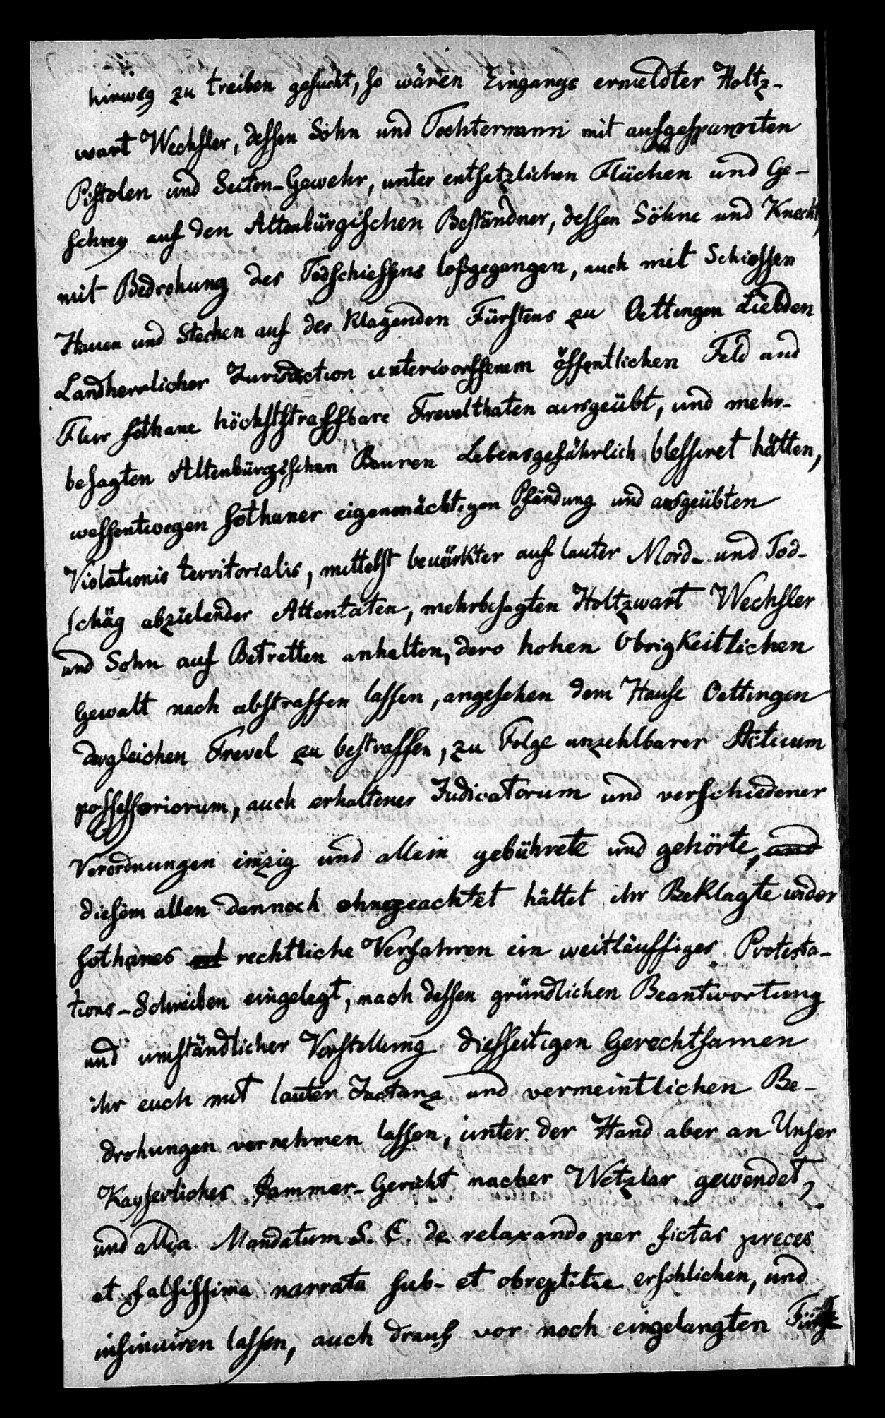 hinweg zu treiben gesucht, so wären Eingangs ermeldter Holtz-
wart Wechsler, dessen Sohn und Tochtermann mit aufgespannten
Pistolen und Seiten-Gewehr, unter entsetzlichen Flüchen und Ge-
schrey auf den Altenbürgischen Beständner, dessen Söhne und Knecht,
mit Bedrohung des Todschiessens loßgegangen, auch mit Schiessen
Hauen und Stechen auf des Klagenden Fürstens zu Oettingen Liebden
Landherrlicher Jurisdiction unterworffenem öffentlichen Feld und
Flur sothane höchststraffbare Frevelthaten ausgeübt, und mehr-
besagten Altenbürgischen Bauren Lebensgefährlich blessiret hätten,
wessentwegen sothaner eigenmächtigen Pfändung und ausgeübten
Violationis territorialis, mittelst bewürkter auf lauter Mord- und Tod-
schäg abzielender Attentaten, mehrbesagten Holtzwart Wechsler
und Sohn auf Betretten anhalten, dero hohen Obrigkeitlichen
Gewalt nach abstraffen lassen, angesehen dem Hause Oettingen
dergleichen Frevel zu bestraffen, zu Folge unzehlbarer Actuum
possessoriorum, auch erhaltener Judicatorum und verschiedener
Verordnungen einzig und allein gebührete und gehörte,
diesem allen dennoch ohngeachtet hättet ihr Beklagte wider
sothanes rechtliche Verfahren ein weitläuffiges Protesta-
tions-Schreiben eingelegt, nach dessen gründlichen Beantwortung
und umständlicher Vorstellung diesseitigen Gerechtsamen
ihr euch mit lauter und vermeintlichen Be-
drohungen vernehmen lassen, unter der Hand aber an Unser
Kayserliches Cammer-Gericht nacher Wetzlar gewendet,
und allda Mandatum S. C. de relaxando per fictas preces
et falsissima narrata sub- et obreptitie erschlichen, und
insinuiren lassen, auch drauf vor noch eingelangten